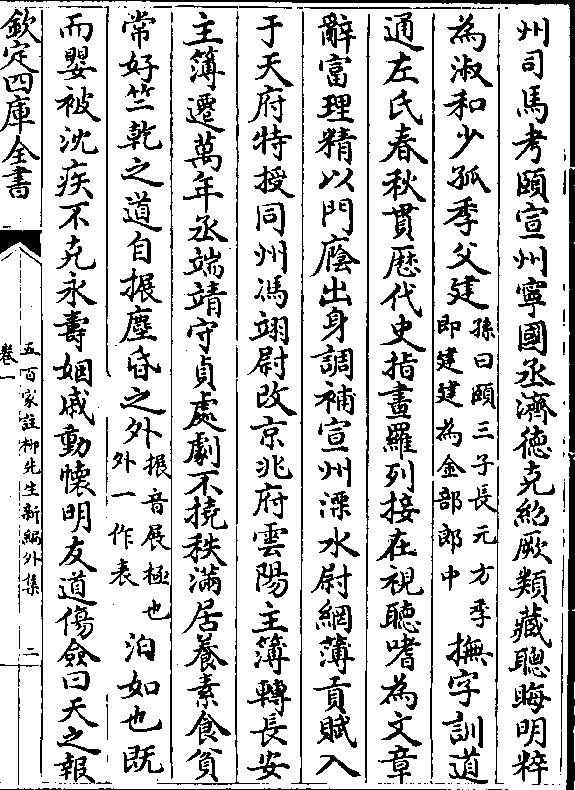 州司馬考頤宣州寧國丞濟德克紹厥類藏聰晦明粹
為淑和少孤季父建孫曰頤三子長元方季即建建為金部郎中撫字訓道
通左氏春秋貫歷代史指畫羅列接在視聽嗜為文章
辭富理精以門廕出身調補宣州溧水尉綱簿貢賦入
于天府特授同州馮翊尉改京兆府雲陽主簿轉長安
主簿遷萬年丞端靖守貞處劇不撓秩滿居養素食貧
常好竺乾之道自搌塵昏之外搌音展極也外一作表泊如也既
而嬰被沈疾不克永壽姻戚動懷明友道傷僉曰天之報
欽定四庫全書
五百家註柳先生新編外集
卷一
二